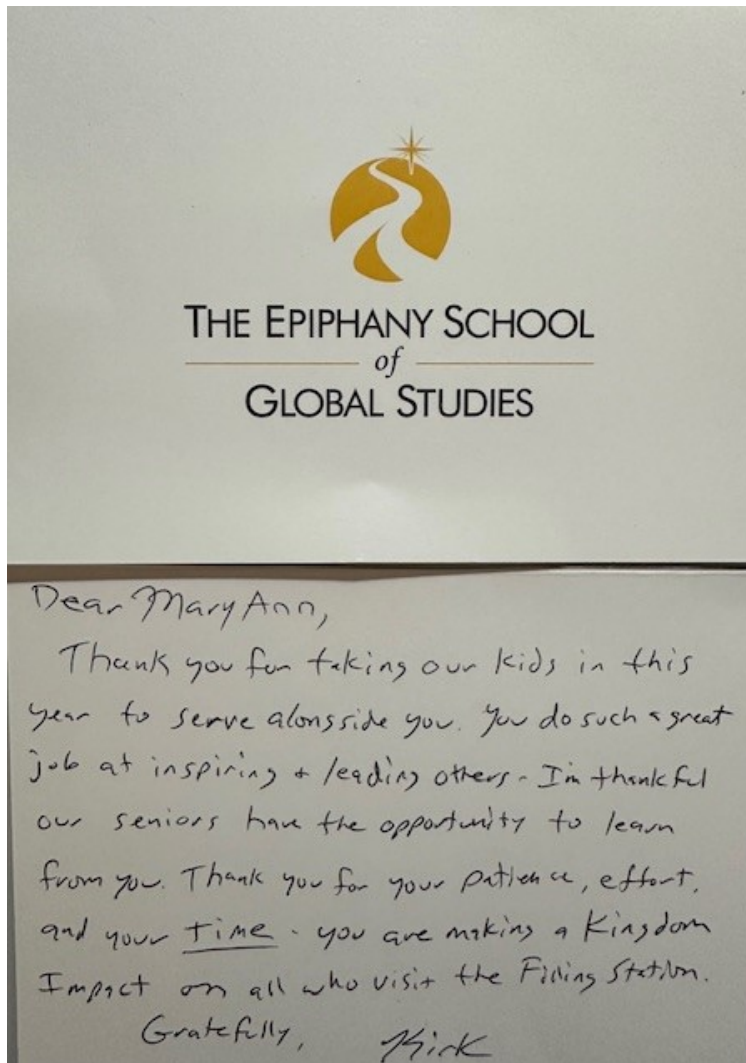 THE EPIPHANY SCHOOL
of
GLOBAL STUDIES
Dear Mary Ann,
Thank you for taking our kids in this
year to serve alongside you. You do such a great
job at inspiring + leading others - I'm thankful
our seniors have the opportunity to learn
from you. Thank you for your patience, effort,
and your time - you are making a Kingdom
Impact on all who visit the Filling Station.
Gratefully, Kirk